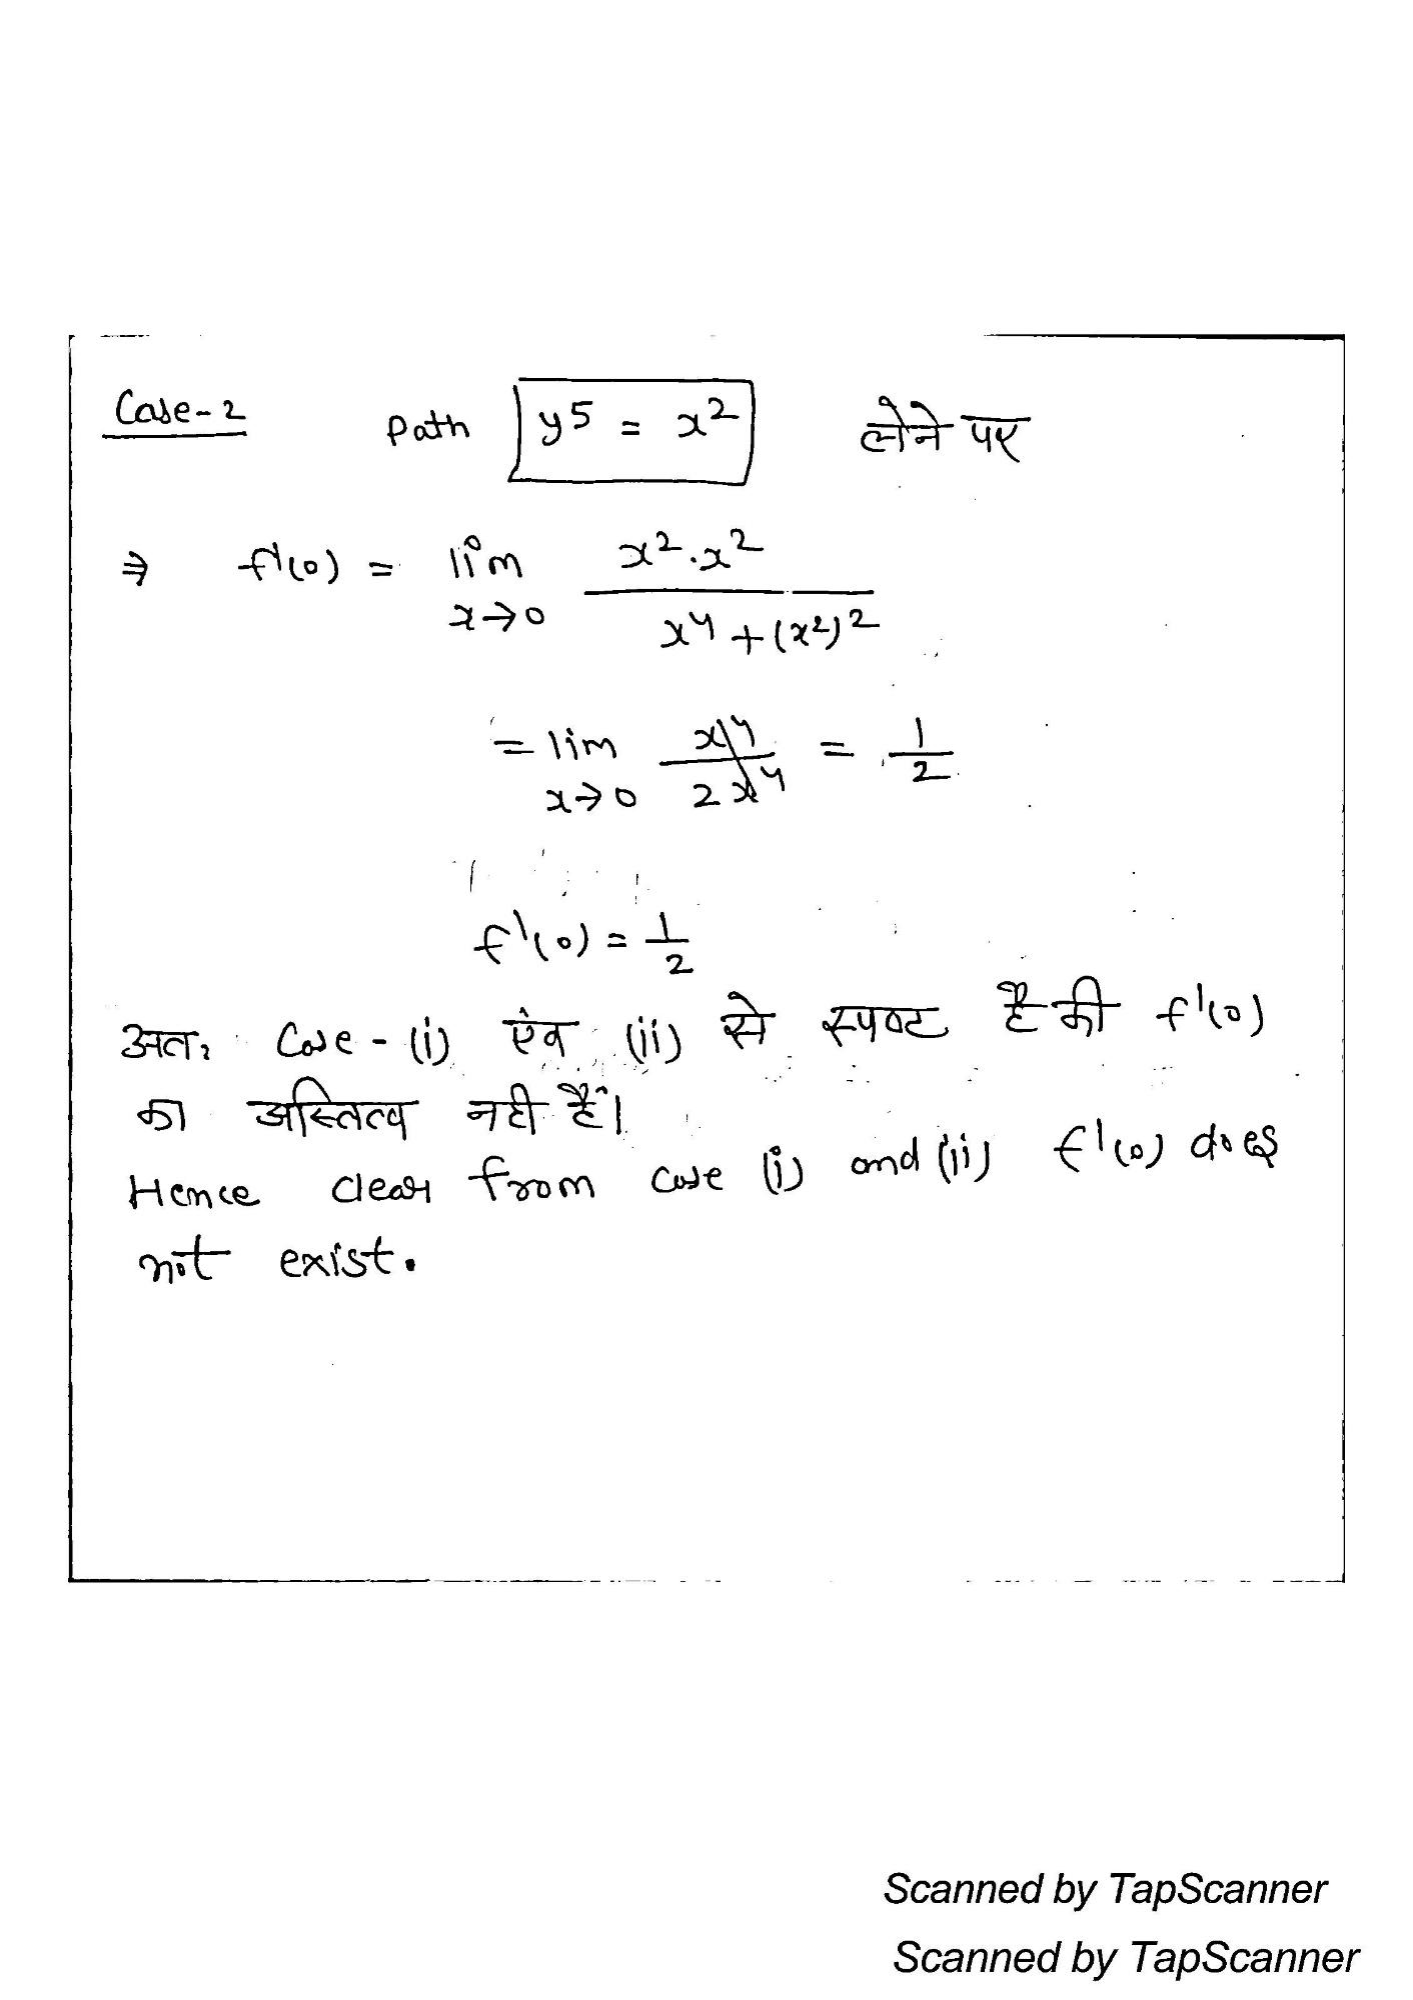 Case-2 Path y⁵ = x² लेने पर
⇒ f'(0) = lim x→0 x²·x² / x⁴+(x²)²
= lim x→0 x⁴ / 2x⁴ = 1/2
f'(0) = 1/2
अतः Case-(i) एंव (ii) से स्पष्ट है की f'(0)
का अस्तित्व नही हैं।
Hence clear from case (i) and (ii) f'(0) does
not exist.
Scanned by TapScanner
Scanned by TapScanner